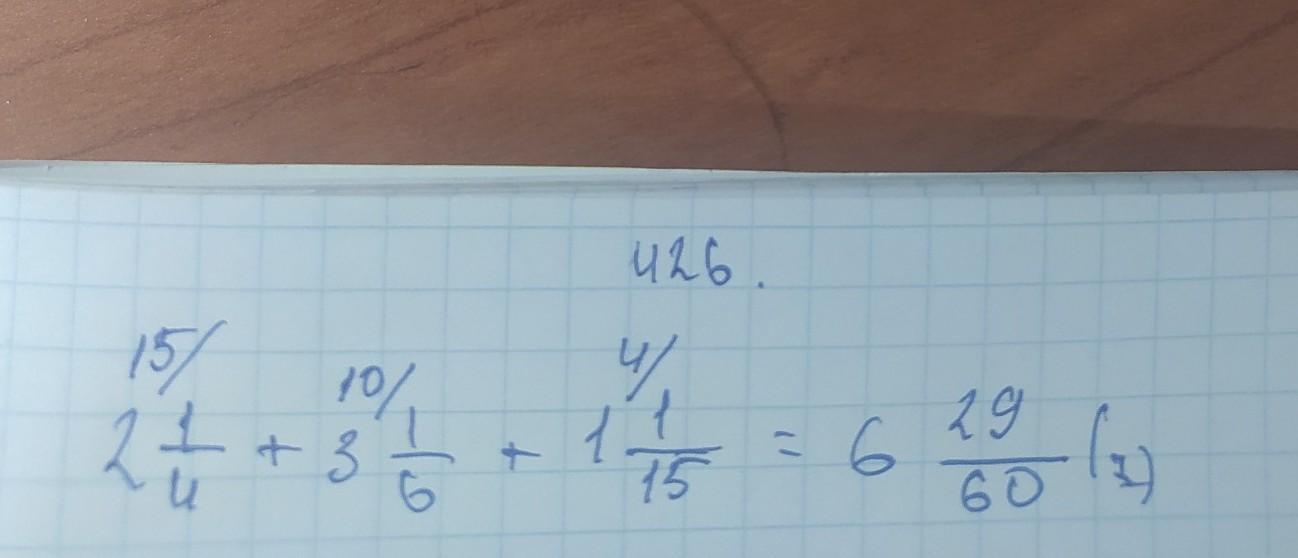 426.
15/ 10/ 4/
2 1/4 + 3 1/6 + 1 1/15 = 6 29/60 (г)